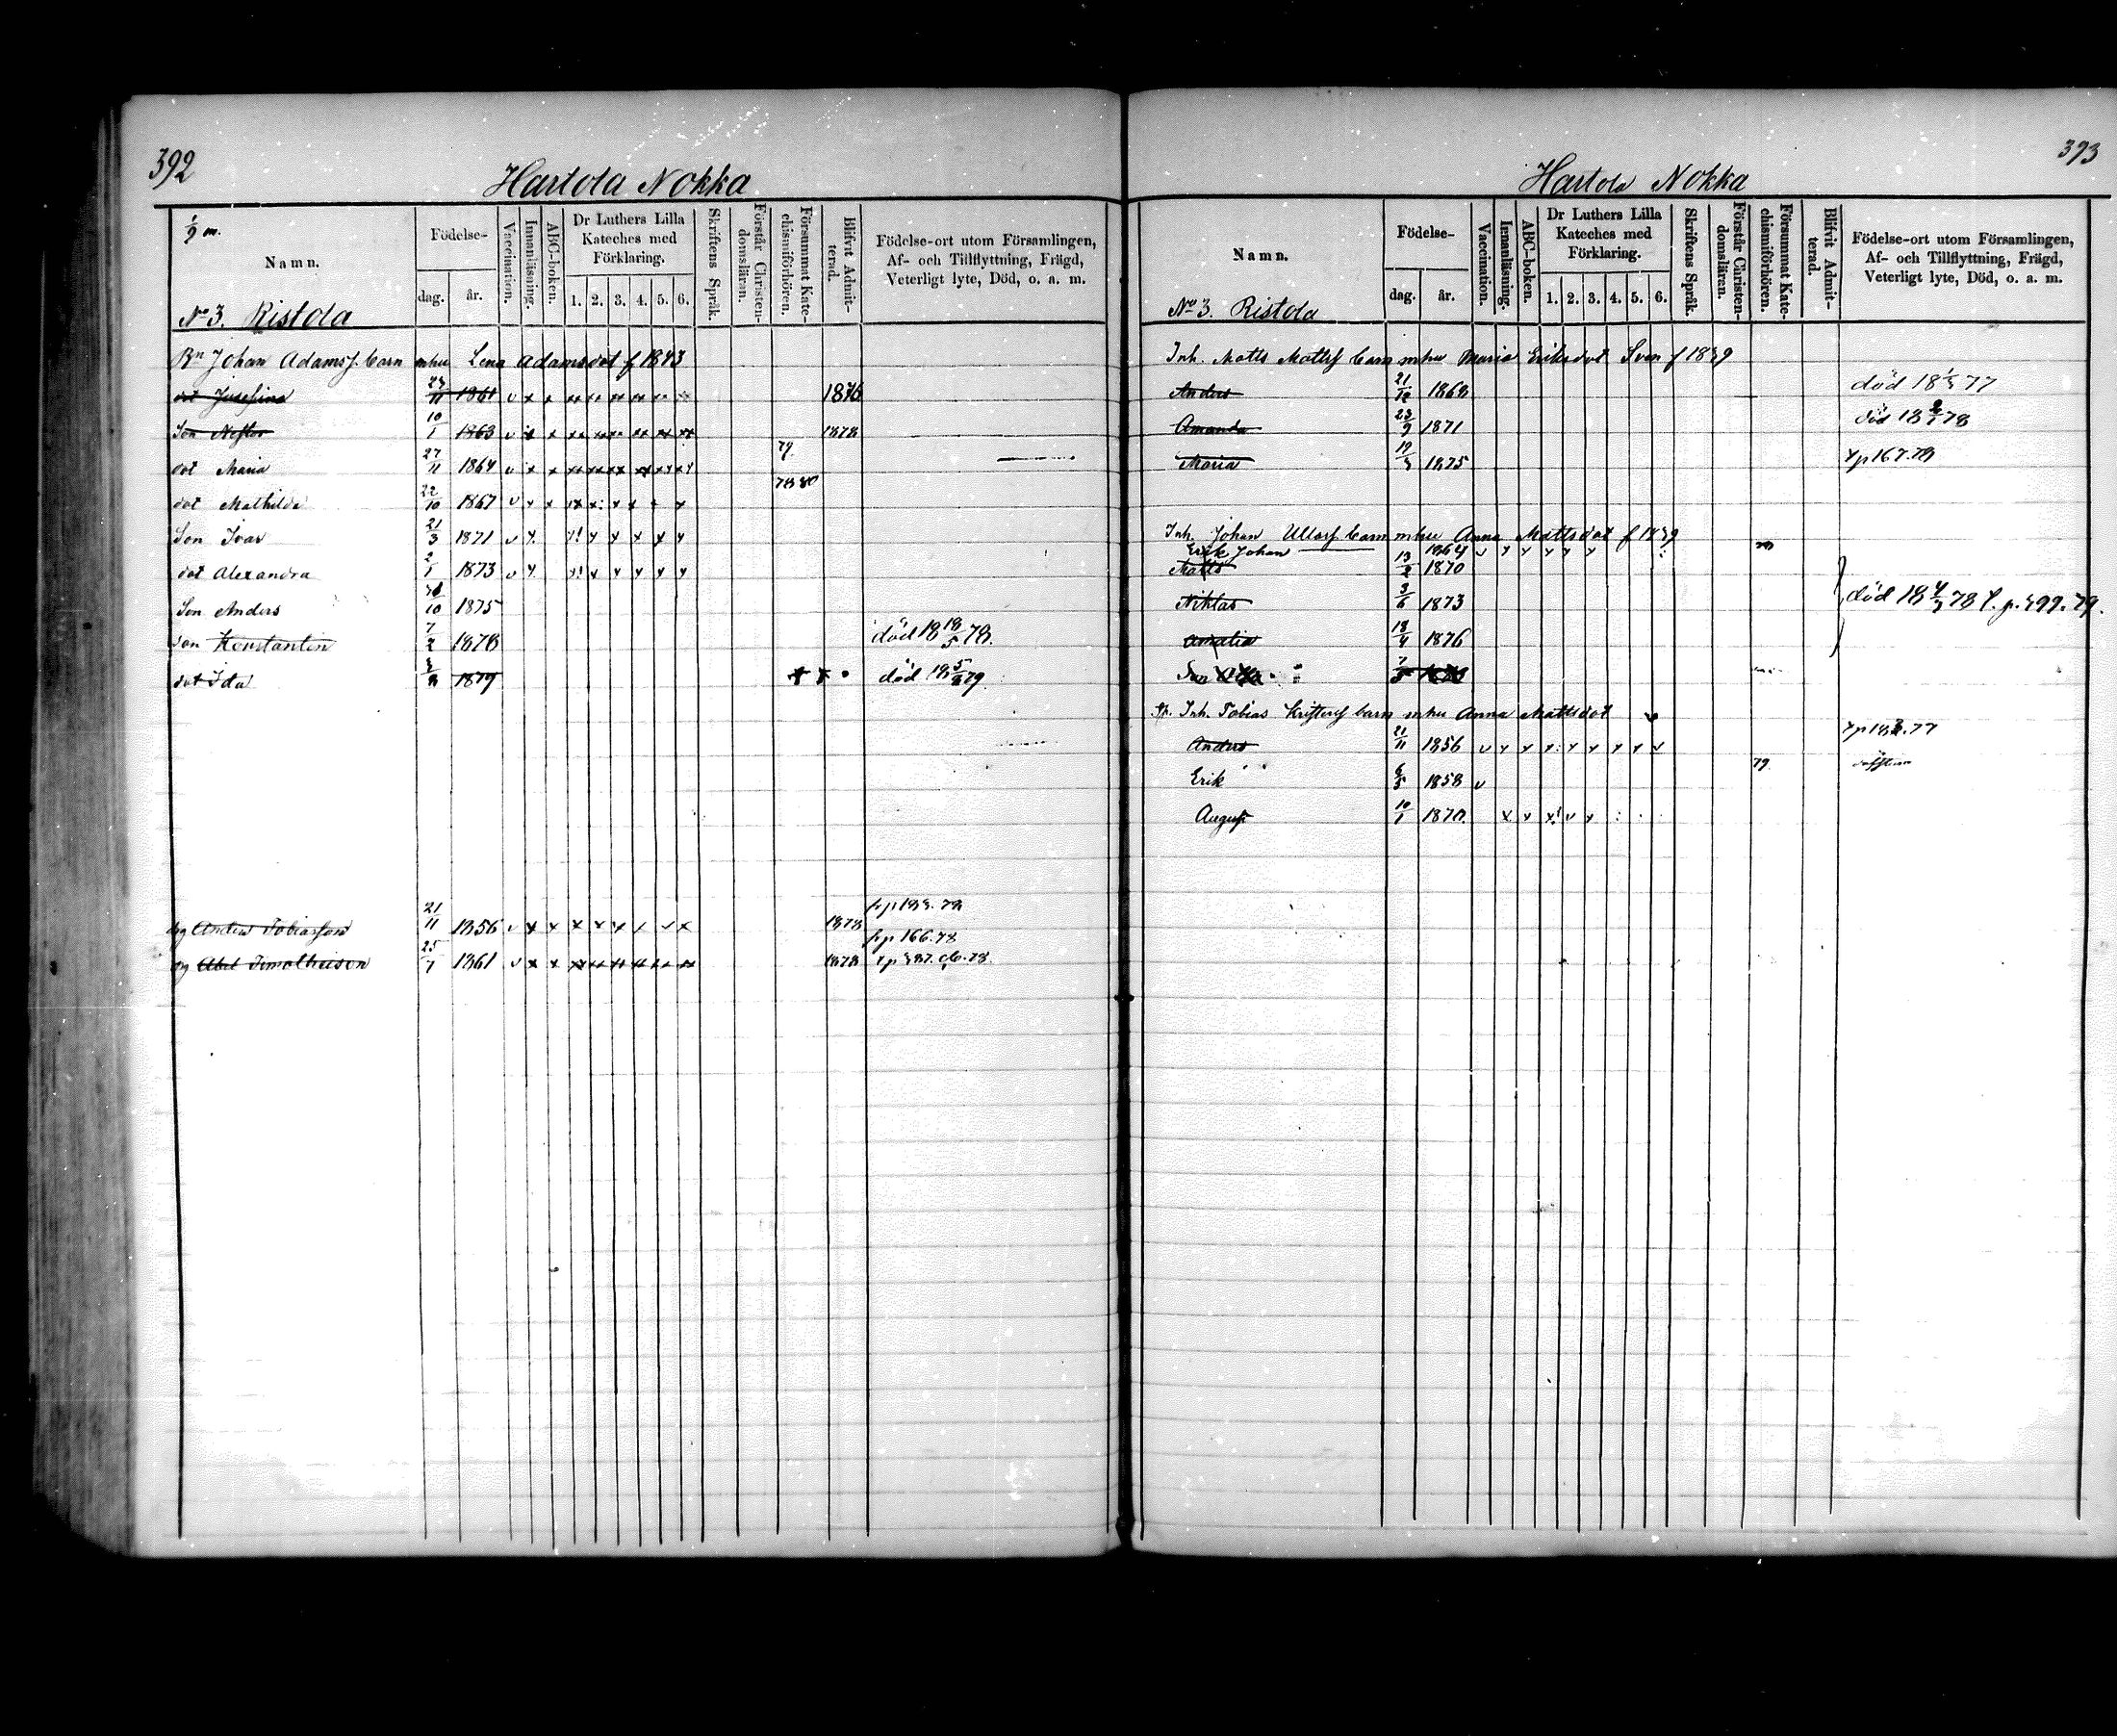 392
Hartola Nokka
1/9 m.
Namn.
Födelse-
dag. år.
Vaccination.
Innanläsning.
ABC-boken.
Dr Luthers Lilla Kateches med Förklaring.
1. 2. 3. 4. 5. 6.
Skriftens Språk.
Förstår Christendomsläran.
Försummat Katechismiförhören.
Blifvit Admitterad.
Födelse-ort utom Församlingen,
Af- och Tillflyttning, Frägd,
Veterligt lyte, Död, o. a. m.
No 3. Ristola
Bn Johan Adamss. barn mhu Lena Adamsdot f 1843
dot Josefina 23/11 1861 v x x 1876
Son Nestor 10/1 1863 v x x 1878
dot Maria 27/11 1864 v x x 79.
dot Mathilda 22/10 1867 v x x 78 80
Son Ivar 21/3 1871 v x
dot Alexandra 2/1 1873 v x
Son Anders /10 1875
son Konstantin 7/2 1878 död 18 18/5 78.
dot Ida 1879 död 18 5/ 79.
drg Anders Tobiasson 21/11 1856 v x x x x x 1878 fr p 78
drg Abel Timotheison 25/7 1861 v x x 1878 fr p 166.78
393
Hartola Nokka
Namn.
Födelse-
dag. år.
Vaccination.
Innanläsning.
ABC-boken.
Dr Luthers Lilla Kateches med Förklaring.
1. 2. 3. 4. 5. 6.
Skriftens Språk.
Förstår Christendomsläran.
Försummat Katechismiförhören.
Blifvit Admitterad.
Födelse-ort utom Församlingen,
Af- och Tillflyttning, Frägd,
Veterligt lyte, Död, o. a. m.
No 3. Ristola
Inh. Matts Mattss barn mhu Maria Eriksdot Sven f 1839
Anders 21/12 1868 död 18 77
Amanda 23/9 1871 död 18 78
Maria 1875 p 167.79
Inh. Johan Ullasf barn mhu Anna Mattsdot f 1839
Erik Johan 1864 v
Matts 13/2 1870
Niklas 3/6 1873 död 18 4/ 78 p. 399.79.
Amalia 18/4 1876
Son
Inh. Tobias Kristerss barn mhu Anna Mattsdot
Anders 21/11 1856 v x x x 77
Erik 6/5 1858 v 79.
August 10/1 1870. x x x! v x